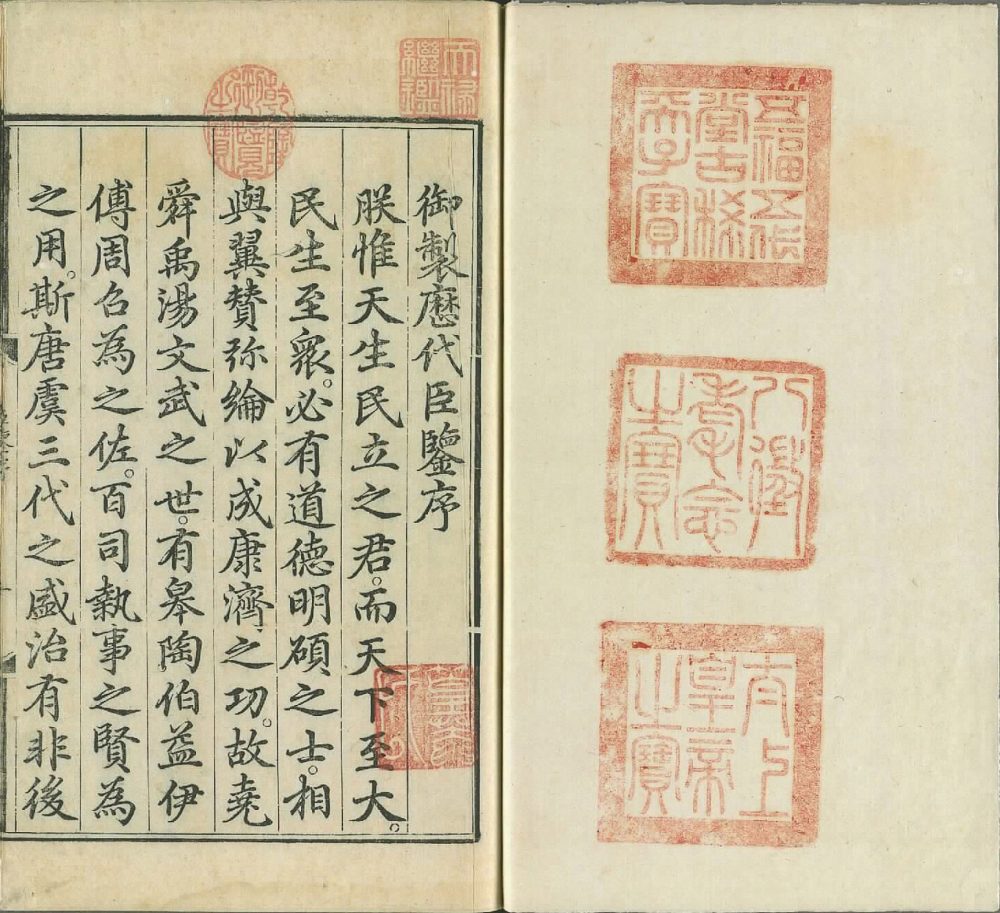 五福五代
堂古稀
天子寶
八徵
耄念
之寶
太上
皇帝
之寶
天祿
繼鑑
乾隆
御覽
之寶
御製歷代臣鑒序
朕惟天生民立之君。而天下至大。
民生至衆。必有道德明碩之士。相
與翼賛弥綸以成康濟之功。故堯
舜禹湯文武之世。有皋陶伯益伊
傅周召為之佐。百司執事之賢為
之用。斯唐虞三代之盛治有非後